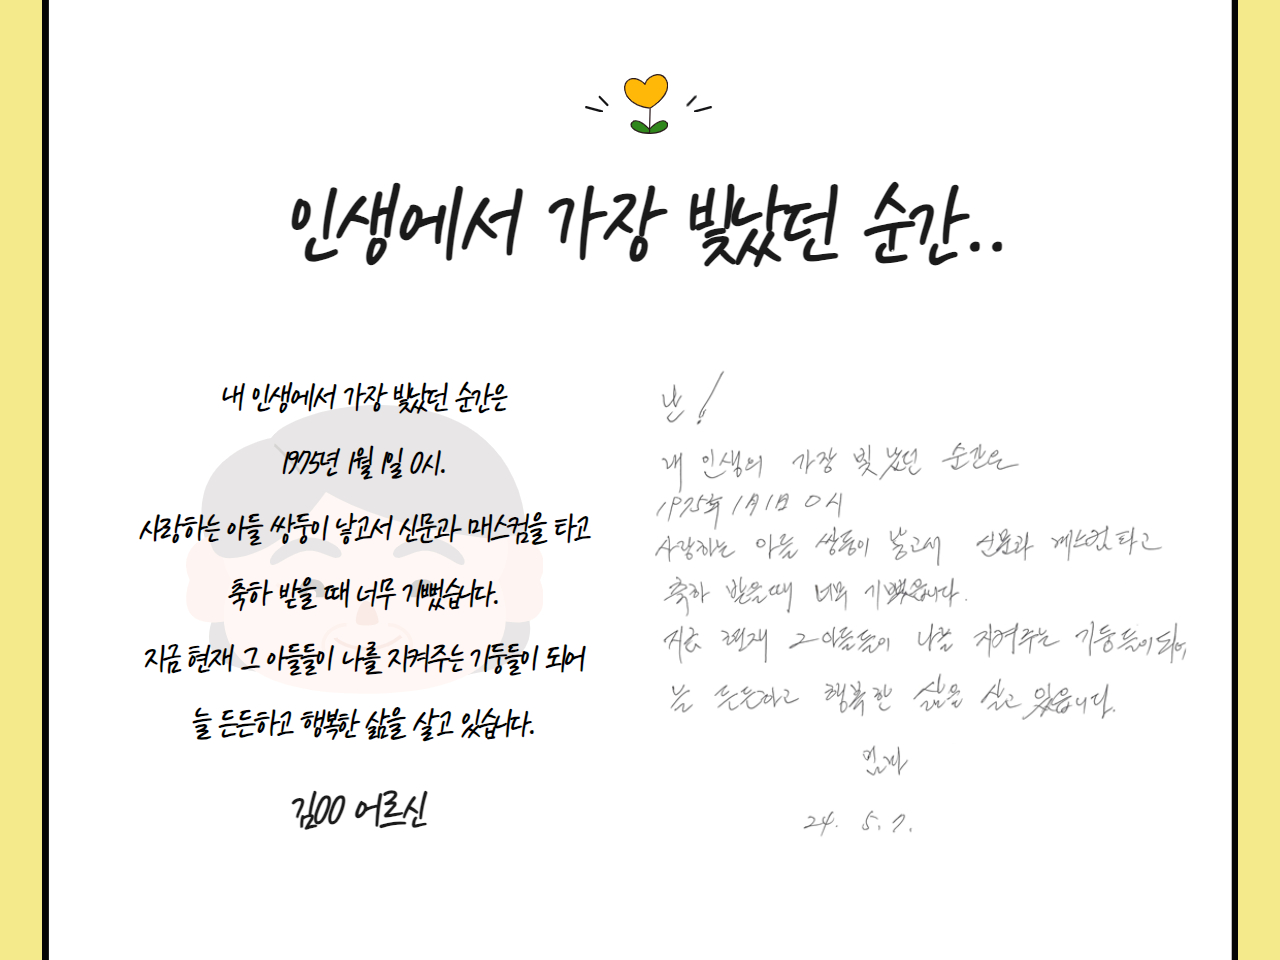 인생에서 가장 빛났던 순간..
내 인생에서 가장 빛났던 순간은
1975년 1월 1일 0시.
사랑하는 아들 쌍둥이 낳고서 신문과 매스컴을 타고
축하 받을 때 너무 기뻤습니다.
지금 현재 그 아들들이 나를 지켜주는 기둥들이 되어
늘 든든하고 행복한 삶을 살고 있습니다.
김OO 어르신
난!
내 인생의 가장 빛났던 순간은
1975年 1月 1日 0시
사랑하는 아들 쌍둥이 낳고서 신문과 타고
축하 받을때 너무 기뻤습니다.
지금 현재 그 아들들이 나를 지켜주는 기둥들이 되어,
늘 든든하고 행복한 삶을 살고 있습니다.
24. 5. 7.